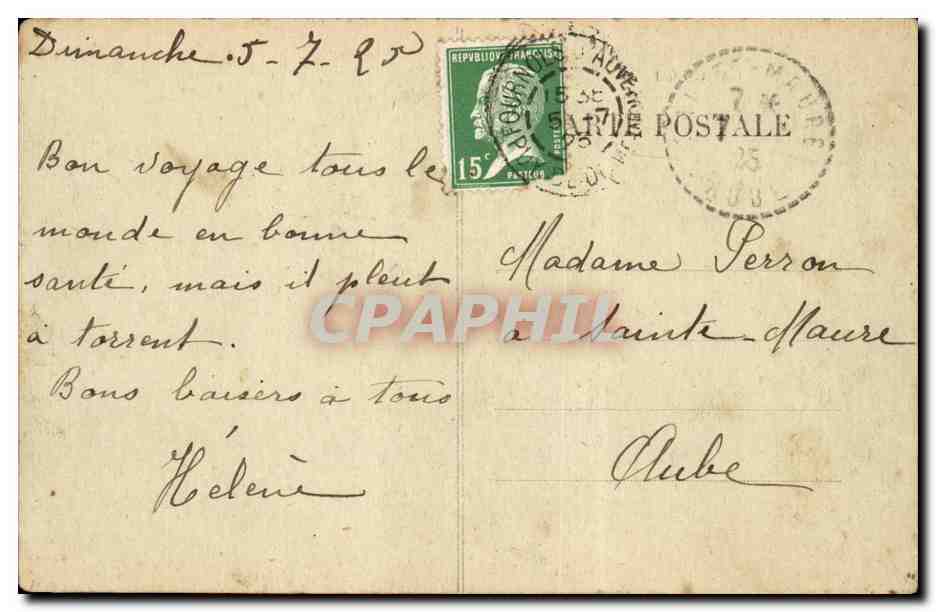 Dimanche 5-7-25
Bon voyage tous le
monde en bonne
santé, mais il pleut
à torrent.
Bons baisers à tous
Hélène
REPUBLIQUE FRANÇAISE
15c
POSTES
PASTEUR
POURÇON D'AUVERGNE
15 38
5-7
25
PUY-DE-DÔME
CARTE POSTALE
MAURE
7
25
AUBE
Madame Perron
à Sainte-Maure
Aube
CPAPHIL